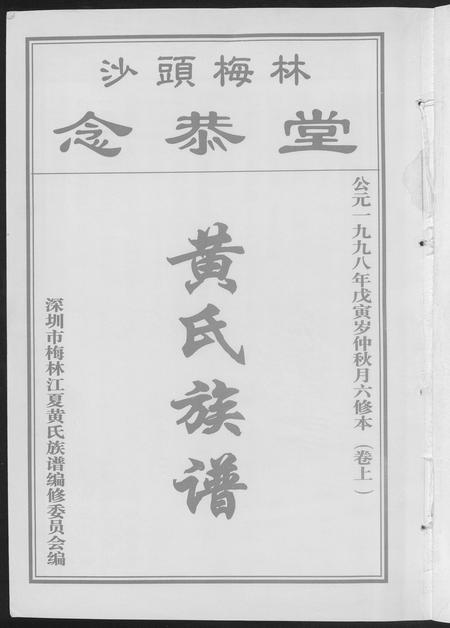 沙頭梅林
念恭堂
公元一九九八年戊寅岁仲秋月六修本（卷上）
黄氏族谱
深圳市梅林江夏黄氏族谱编修委员会编